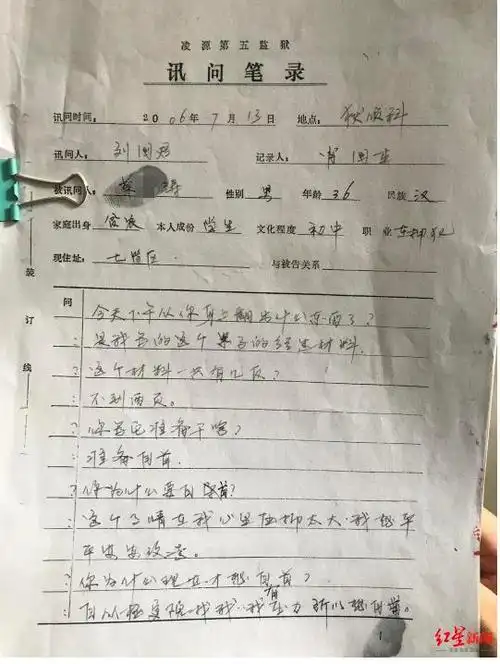 凌源第五监狱
讯问笔录
讯问时间: 2006年7月13日 地点: 狱侦科
讯问人: 刘国君 记录人: 国
被讯问人: 性别 男 年龄 36 民族 汉
家庭出身 贫农 本人成份 学生 文化程度 初中 职业 在押犯
现住址: 七监区 与被告关系
装
订
线
问 今天下午从你身上翻出什么东西了?
: 是我写的这个案子的经过材料.
? 这个材料一共有几页?
: 不到两页。
? 你写它准备干啥?
: 准备自首.
? 你为什么要自首?
: 这个事情在我心里压抑太大,我想平
平安安改造。
? 你为什么现在才想自首?
: 自从找我,我有压力所以想自首。
1
红星新闻